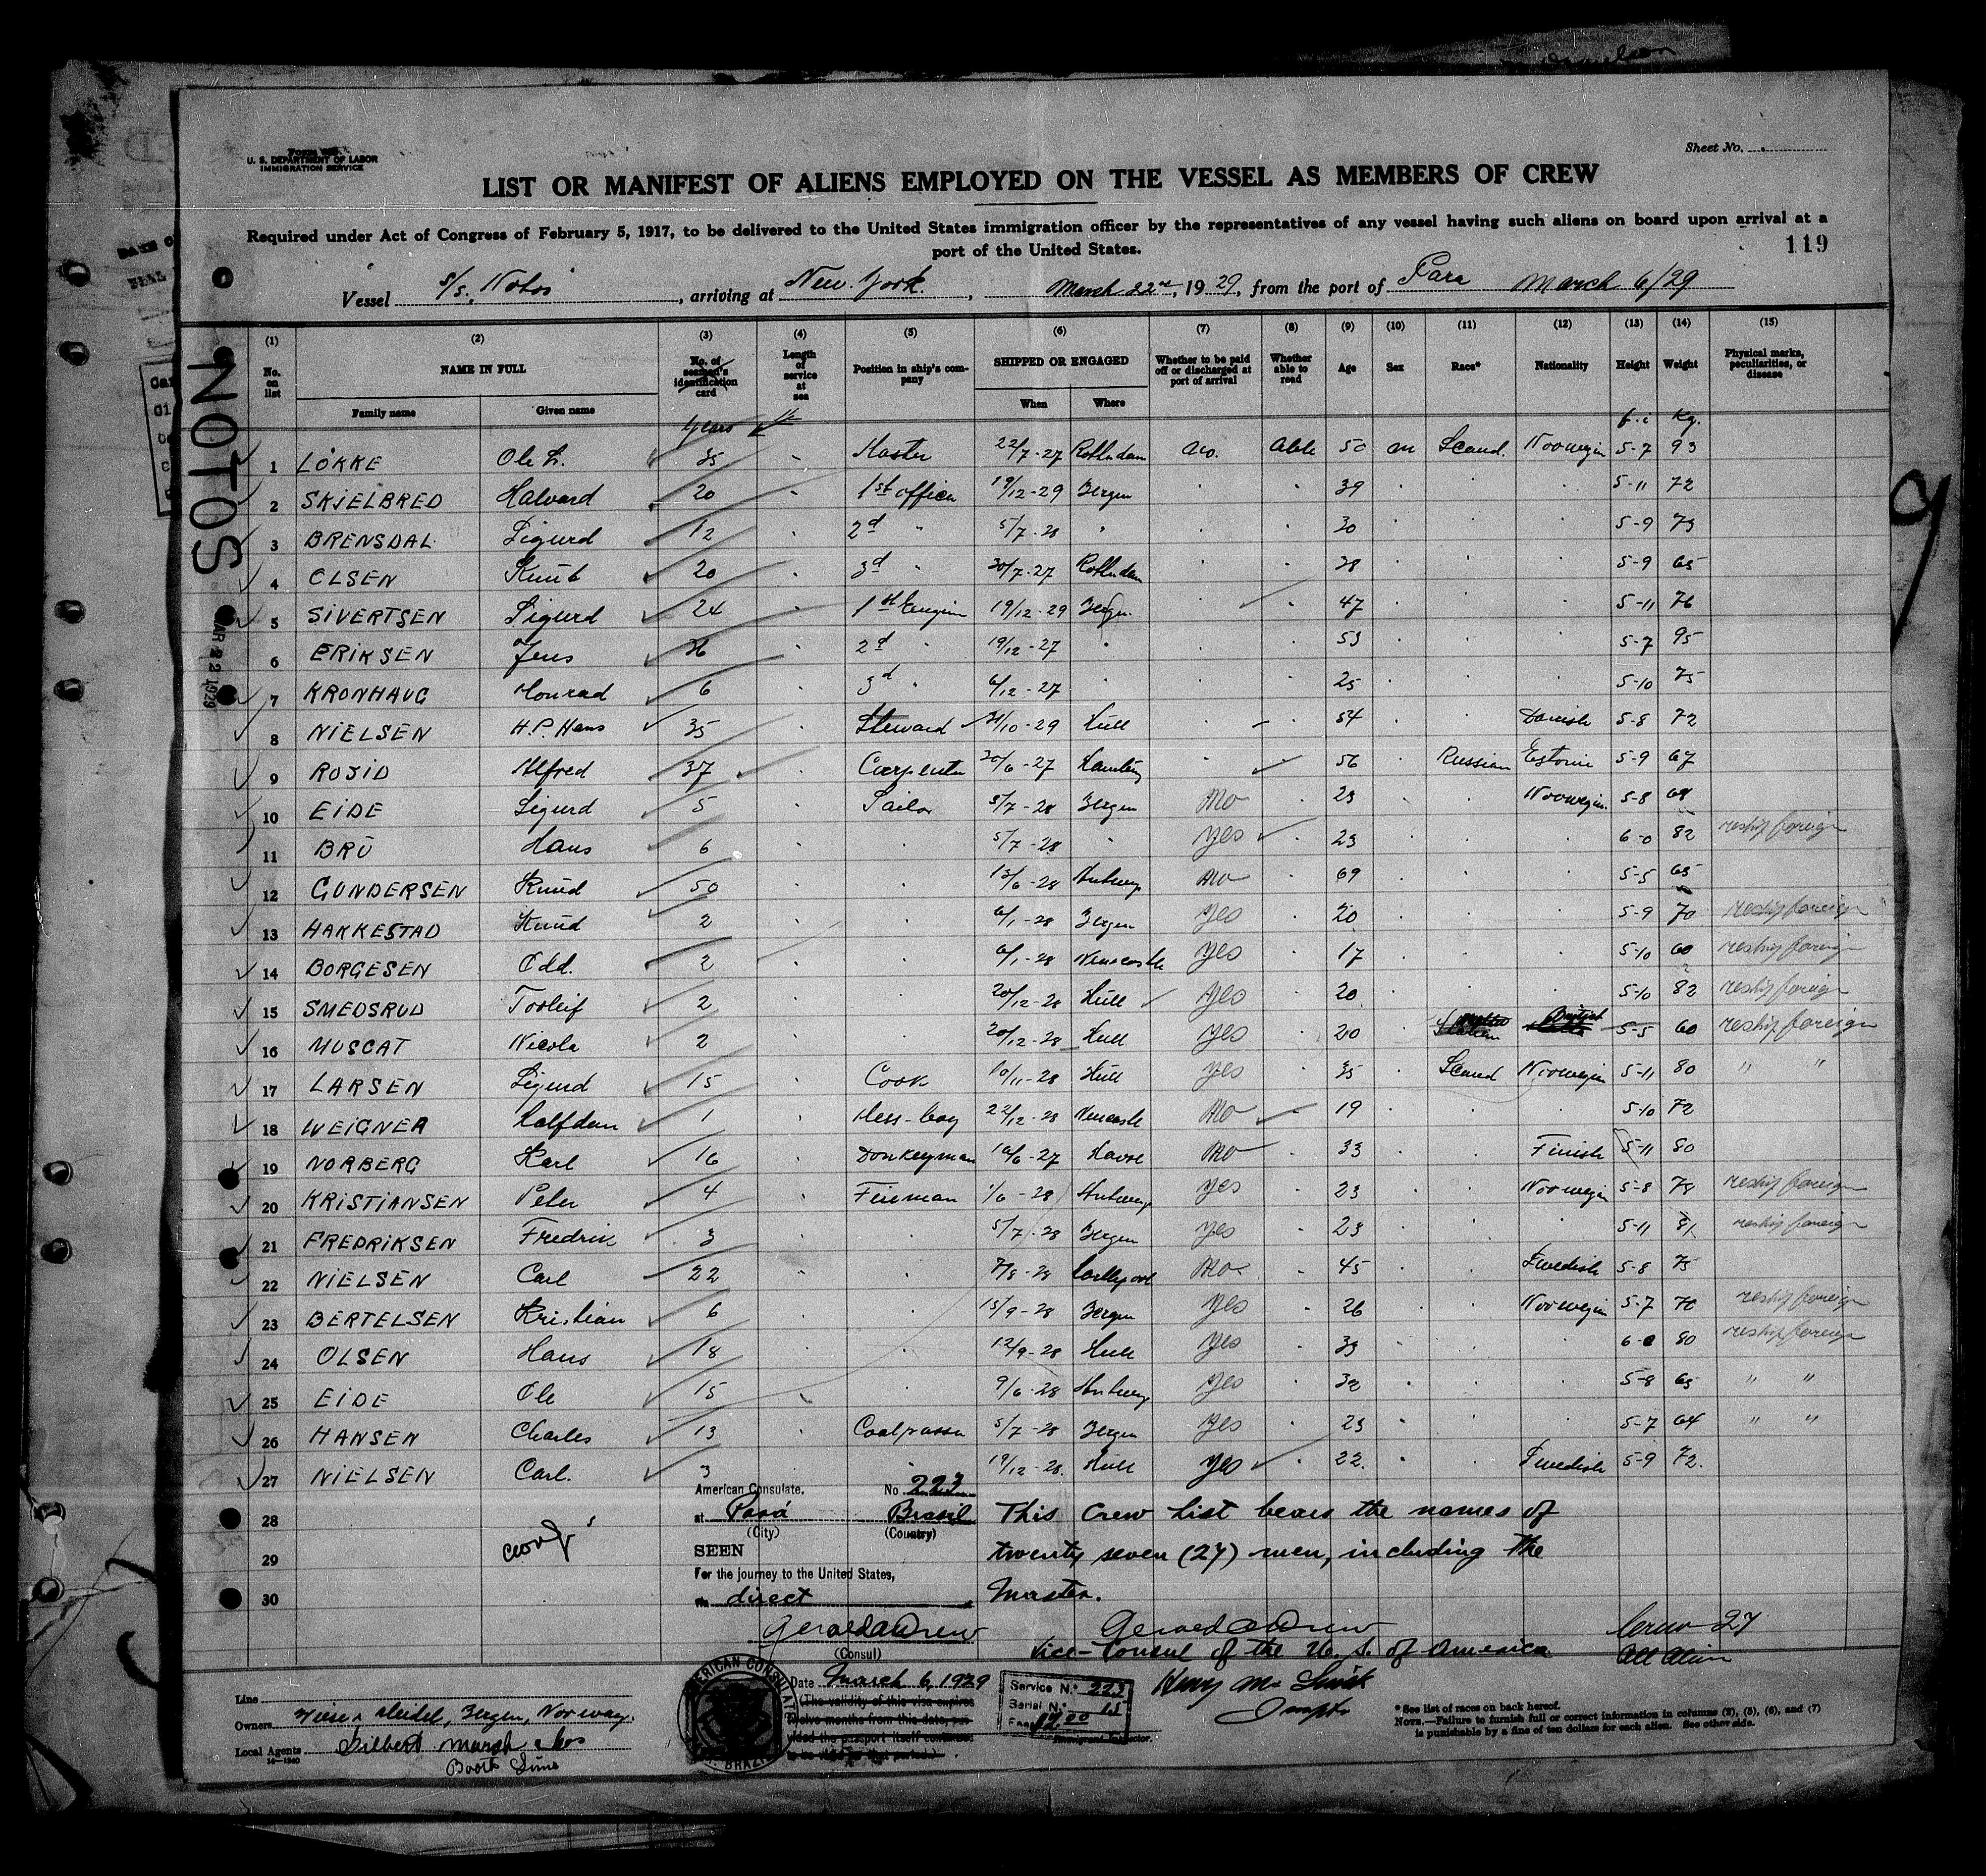 Form
U. S. DEPARTMENT OF LABOR
IMMIGRATION SERVICE
Sheet No.
LIST OR MANIFEST OF ALIENS EMPLOYED ON THE VESSEL AS MEMBERS OF CREW
Required under Act of Congress of February 5, 1917, to be delivered to the United States immigration officer by the representatives of any vessel having such aliens on board upon arrival at a
port of the United States.
119
Vessel S/s. Notos, arriving at New York, March 22nd, 1929, from the port of Para March 6/29
NOTOS
MAR 22 1929
9
(1) (2) (3) (4) (5) (6) (7) (8) (9) (10) (11) (12) (13) (14) (15)
No. on list
NAME IN FULL
Family name Given name
No. of seamen's identification card
Length of service at sea
Position in ship's company
SHIPPED OR ENGAGED
When Where
Whether to be paid off or discharged at port of arrival
Whether able to read
Age Sex Race* Nationality Height Weight
Physical marks, peculiarities, or disease
years f. i Kg.
1 LÖKKE Ole L. 35 Master 22/7-27 Rotterdam no. able 50 m Scand. Norwegin 5-7 93
2 SKJELBRED Halvard 20 1st officer 19/12-29 Bergen 39 5-11 72
3 BRENSDAL Sigurd 12 2d " 5/7-28 " 30 5-9 73
4 OLSEN Knut 20 3d " 30/7-27 Rotterdam 38 5-9 65
5 SIVERTSEN Sigurd 24 1st Engin 19/12-29 Bergen 47 5-11 76
6 ERIKSEN Jens 36 2d " 19/12-27 " 53 5-7 95
7 KRONHAUG Konrad 6 3d " 6/12-27 " 25 5-10 75
8 NIELSEN H.P. Hans 35 Steward 31/10-29 Hull 54 Danish 5-8 72
9 ROSID Alfred 37 Carpenter 30/6-27 56 Russian Estonin 5-9 67
10 EIDE Sigurd 5 Sailor 5/7-28 Bergen No 23 Norwegin 5-8 68
11 BRU Hans 6 5/7-28 " Yes 23 6-0 82 reship foreign
12 GUNDERSEN Knud 50 13/6-28 Antwerp No 69 5-5 65
13 HAKKESTAD Knud 2 6/1-28 Bergen Yes 20 5-9 70 reship foreign
14 BORGESEN Odd. 2 6/1-28 Newcastle Yes 17 5-10 60 reship foreign
15 SMEDSRUD Torleif 2 20/12-28 Hull Yes 20 5-10 82 reship foreign
16 MUSCAT Nicola 2 20/12-28 Hull Yes 20 British 5-5 60 reship foreign
17 LARSEN Sigurd 15 Cook 10/11-28 Hull Yes 35 Scand Norwegin 5-11 80 " "
18 WEIGNER Halfdan 1 Mess-boy 22/12-28 Newcastle No 19 5-10 72
19 NORBERG Karl 16 Donkeyman 16/6-27 Havre No 33 Finish 5-11 80
20 KRISTIANSEN Peter 4 Fireman 1/6-28 Antwerp Yes 23 Norwegin 5-8 78 reship foreign
21 FREDRIKSEN Fredrik 3 5/7-28 Bergen Yes 23 5-11 81 reship foreign
22 NIELSEN Carl 22 7/8-28 No 45 Swedish 5-8 75
23 BERTELSEN Kristian 6 15/9-28 Bergen Yes 26 Norwegin 5-7 70 reship foreign
24 OLSEN Hans 18 12/9-28 Hull Yes 39 6-0 80 reship foreign
25 EIDE Ole 15 9/6-28 Antwerp Yes 32 5-8 65 " "
26 HANSEN Charles 13 Coalpasser 5/7-28 Bergen Yes 23 5-7 64 " "
27 NIELSEN Carl. 3 19/12-28. Hull Yes 22. Swedish 5-9 72.
28
29
30
American Consulate. No 223
at Pará Brasil
(City) (Country)
SEEN
For the journey to the United States,
via direct
Gerald A Drew
(Consul)
This Crew list bears the names of
twenty seven (27) men, including the
Master.
Gerald A Drew
Vice-Consul of the U. S. of America
Crew 27
All Alien
AMERICAN CONSULATE
BRAZIL
Date March 6, 1929
(The validity of this visa expires
twelve months from this date, provided the passport itself continues
to be valid for that period.)
Service No. 223
Serial No.
Fee 12.00
Immigrant Inspector.
Line
Owners Bergen, Norway.
Local Agents Gilbert Marsh & Cos
Booth Line
14-1240
*See list of races on back hereof.
NOTE.—Failure to furnish full or correct information in columns (2), (5), (6), and (7)
is punishable by a fine of ten dollars for each alien. See other side.